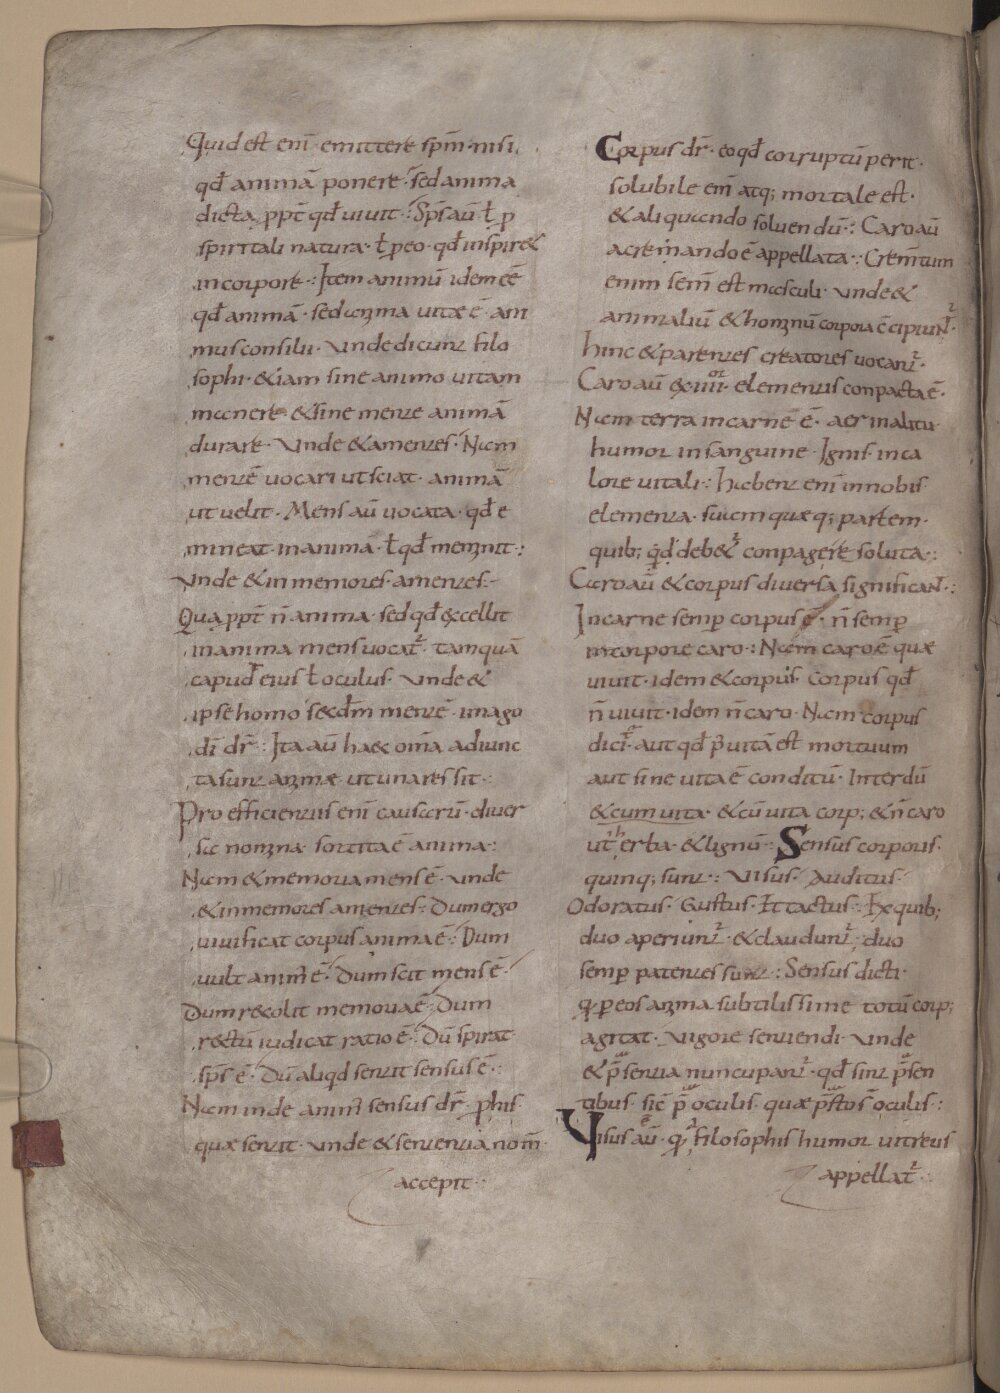 Quid est eni͞ emittere sp͞m· nisi
qđ animā ponere· sed anima
dicta ꝓpt͞ qđ uiuit·: Sp͞s aū ł ꝓ
spiritali natura· ł ꝓ eo· qđ inspir&
in corpore·: Item animū idem e͞e
qđ animā· sed anima uitæ ē· ani
mus consilii· Vnde dicunt filo
sophi· &iam sine animo uitam
manere· & sine mente animā
durare· Vnde & amentes· Nam
mentē uocari ut sciat· animā
ut uelit· Mens aū uocata· qđ e
mineat in anima· ł qđ meminit·:
Vnde & inmemores amentes·
Qua ꝓpt͞ n̄ anima· sed qđ excellit
in anima mens uocat͛· tamquā
capud eius ł oculus· Vnde &
ipse homo sec̄dm mentē· imago
dī dr̄·: Ita aū haec om̄a adiunc
ta sunt animæ ut una res sit·:
Pro efficientiis eni͞ causarū· diuer
sa nomina sortita ē anima·:
Nam & memoria mens ē· unde
& inmemores amentes· Dum ergo
uiuificat corpus anima ē· Dum
uult anim᷒ ē· Dum scit mens ē·
Dum recolit memoria ē· Dum
rectū iudicat ratio ē· Dū spirat
sp͞s ē· Dū aliqd sentit sensus ē·:
Nam inde anim᷒ sensus dr̄· ꝓ his
quæ sentit· unde & sententia nom̄
accepit·:
Corpus dr̄· eo qđ corruptū perit·
solubile eni͞ atq; mortale est·
& aliquando soluendū·: Caro aū
a creṁando ē appellata·: Crem̄tum
enim sem̄ est masculi· unde &
animaliū & hominū corpora ē cipiunt͛·
hinc & parentes creatores uocant͛·
Caro aū ex iiii͛ᵒʳ· elementis conpacta ē·
Nam terra in carne ē· aer in alitu·
humor in sanguine· Ignis in ca
lore uitali·: Habent eni͞ in nobis
elementa· suam quæq; partem·
quib; q̇d deb&͛ conpagere soluta·:
Caro aū & corpus diuersa significant·:
In carne semꝑ corpus ē· n̄ semꝑ
in corpore caro·: Nam caro ē quæ
uiuit· idem & corpus· Corpus qđ
n̄ uiuit· idem n̄ caro· Nam corpus
dicit͛· aut qđ p̄ uitā est mortuum
aut sine uita ē conditū· Interdū
& cum uita· & cū uita corp; & n̄ caro
ut ʰerba· & lignū·: Sensus corporis
quinq; sunt·: Visus· Auditus·
Odoratus· Gustus· Et tactus·: Ex quib;
duo aperiunt͛· & claudunt͛; duo
semꝑ patentes sunt·: Sensus dicti·
q· ꝑ eos anima subtilissime totū corp;
agitat· Vigore sentiendi· Vnde
& p̄sentia nuncupant͛· qđ sint p̄sen
tibus· sic̄ p̄ oculis· quæ p̄stos oculis·:
Visus aū· q· filosophis humor uitreus
appellat͛·